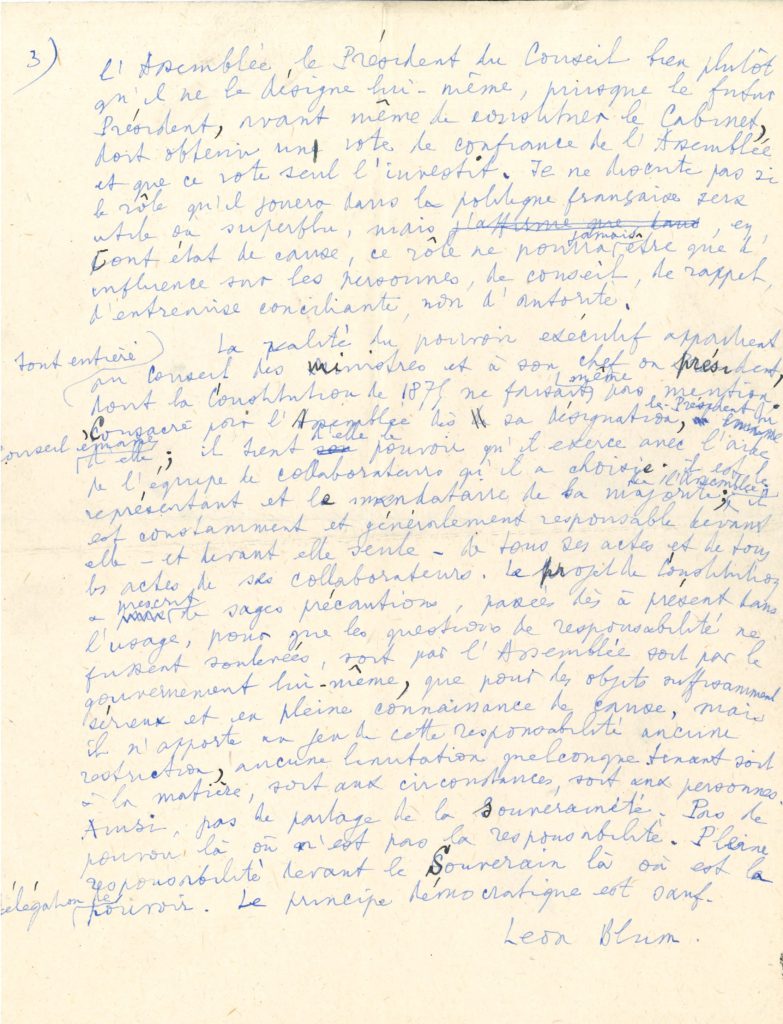 3)
l'Assemblée, le Président du Conseil bien plutôt
qu'il ne le désigne lui-même, puisque le futur
Président, avant même de constituer le Cabinet,
doit obtenir un vote de confiance de l'Assemblée
et que ce vote seul l'investit. Je ne discute pas si
le rôle qu'il jouera dans la politique française sera
utile ou superflu, mais j'affirme que dans, en
tout état de cause, ce rôle ne pourra jamais être que d'
influence sur les personnes, de conseil, de rappel,
d'entremise conciliante, non d'autorité.
La réalité du pouvoir exécutif appartient
tout entière
au Conseil des ministres et à son chef ou président,
dont la Constitution de 1875 ne faisait même pas mention.
Consacré par l'Assemblée dès sa désignation, le Président du
Conseil émane
d'elle ; il tient d'elle le pouvoir qu'il exerce avec l'aide
de l'équipe de collaborateurs qu'il a choisie. Il est le
représentant et le mandataire de la majorité de l'Assemblée ; il
est constamment et généralement responsable devant
elle – et devant elle seule – de tous ses actes et de tous
les actes de ses collaborateurs. Le projet de Constitution
a prescrit de sages précautions, passées dès à présent dans
l'usage, pour que les questions de responsabilité ne
fussent soulevées, soit par l'Assemblée soit par le
gouvernement lui-même, que pour des objets suffisamment
sérieux et en pleine connaissance de cause, mais
il n'apporte au jeu de cette responsabilité aucune
restriction, aucune limitation quelconque tenant soit
à la matière, soit aux circonstances, soit aux personnes.
Ainsi, pas de partage de la Souveraineté. Pas de
pouvoir là où n'est pas la responsabilité. Pleine
responsabilité devant le Souverain là où est la
délégation de
pouvoir. Le principe démocratique est sauf.
Léon Blum.